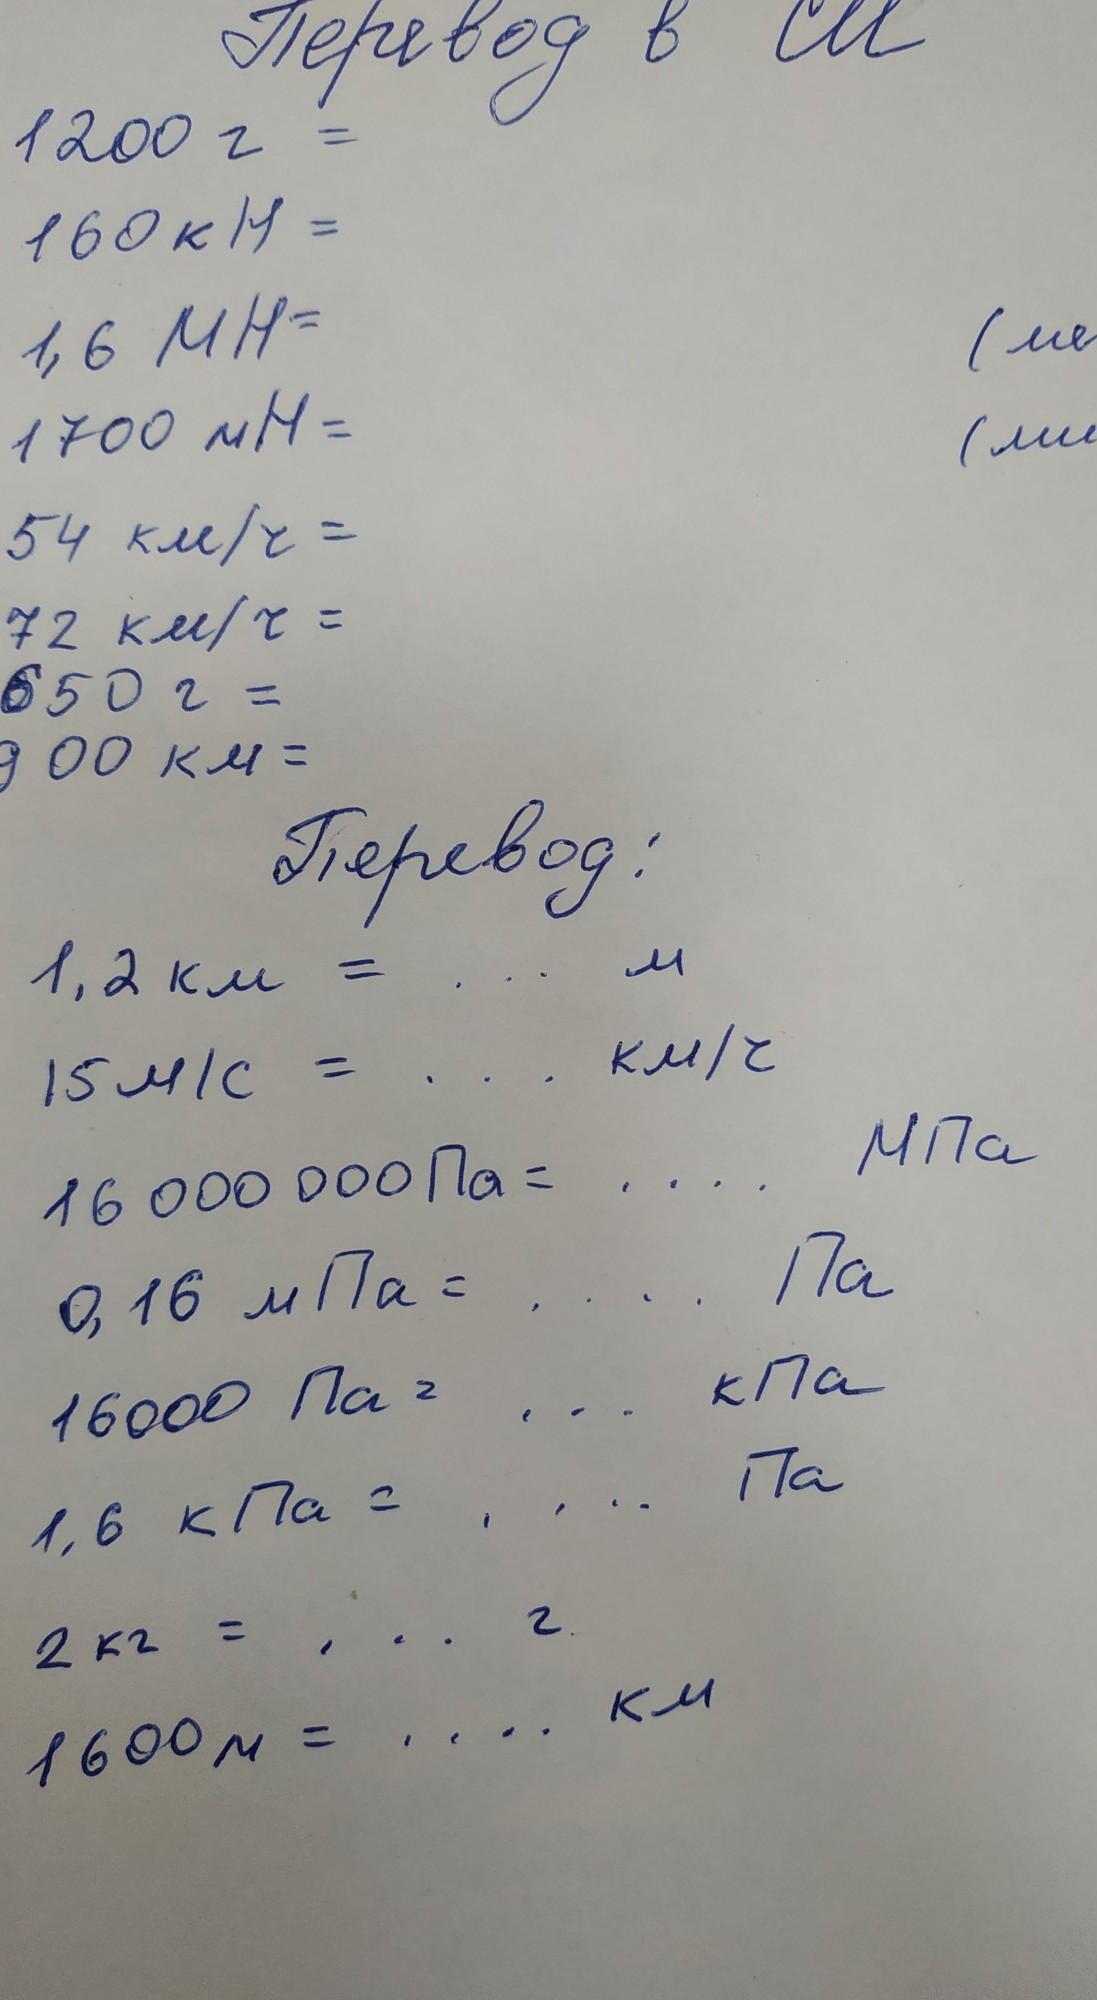 Перевод в СИ
1200 г =
160 кН =
1,6 МН=
(ме
1700 мН=
(ми
54 км/ч =
72 км/ч =
650 г =
900 км=
Перевод:
1,2 км = ... м
15 м/с = ... км/ч
16 000 000 Па= .... МПа
0,16 мПа= .... Па
16000 Па= ... кПа
1,6 кПа = .... Па
2 кг = ... г
1600 м = .... км